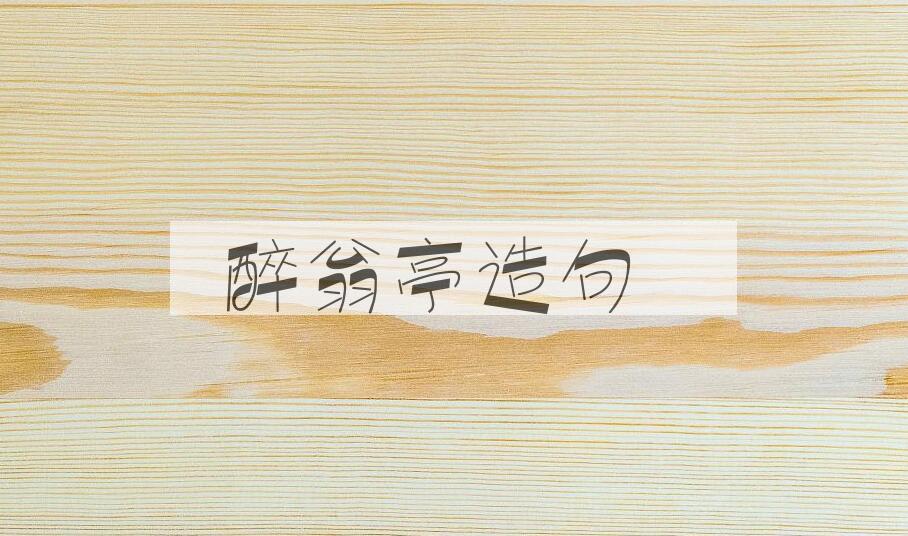 醉翁亭造句